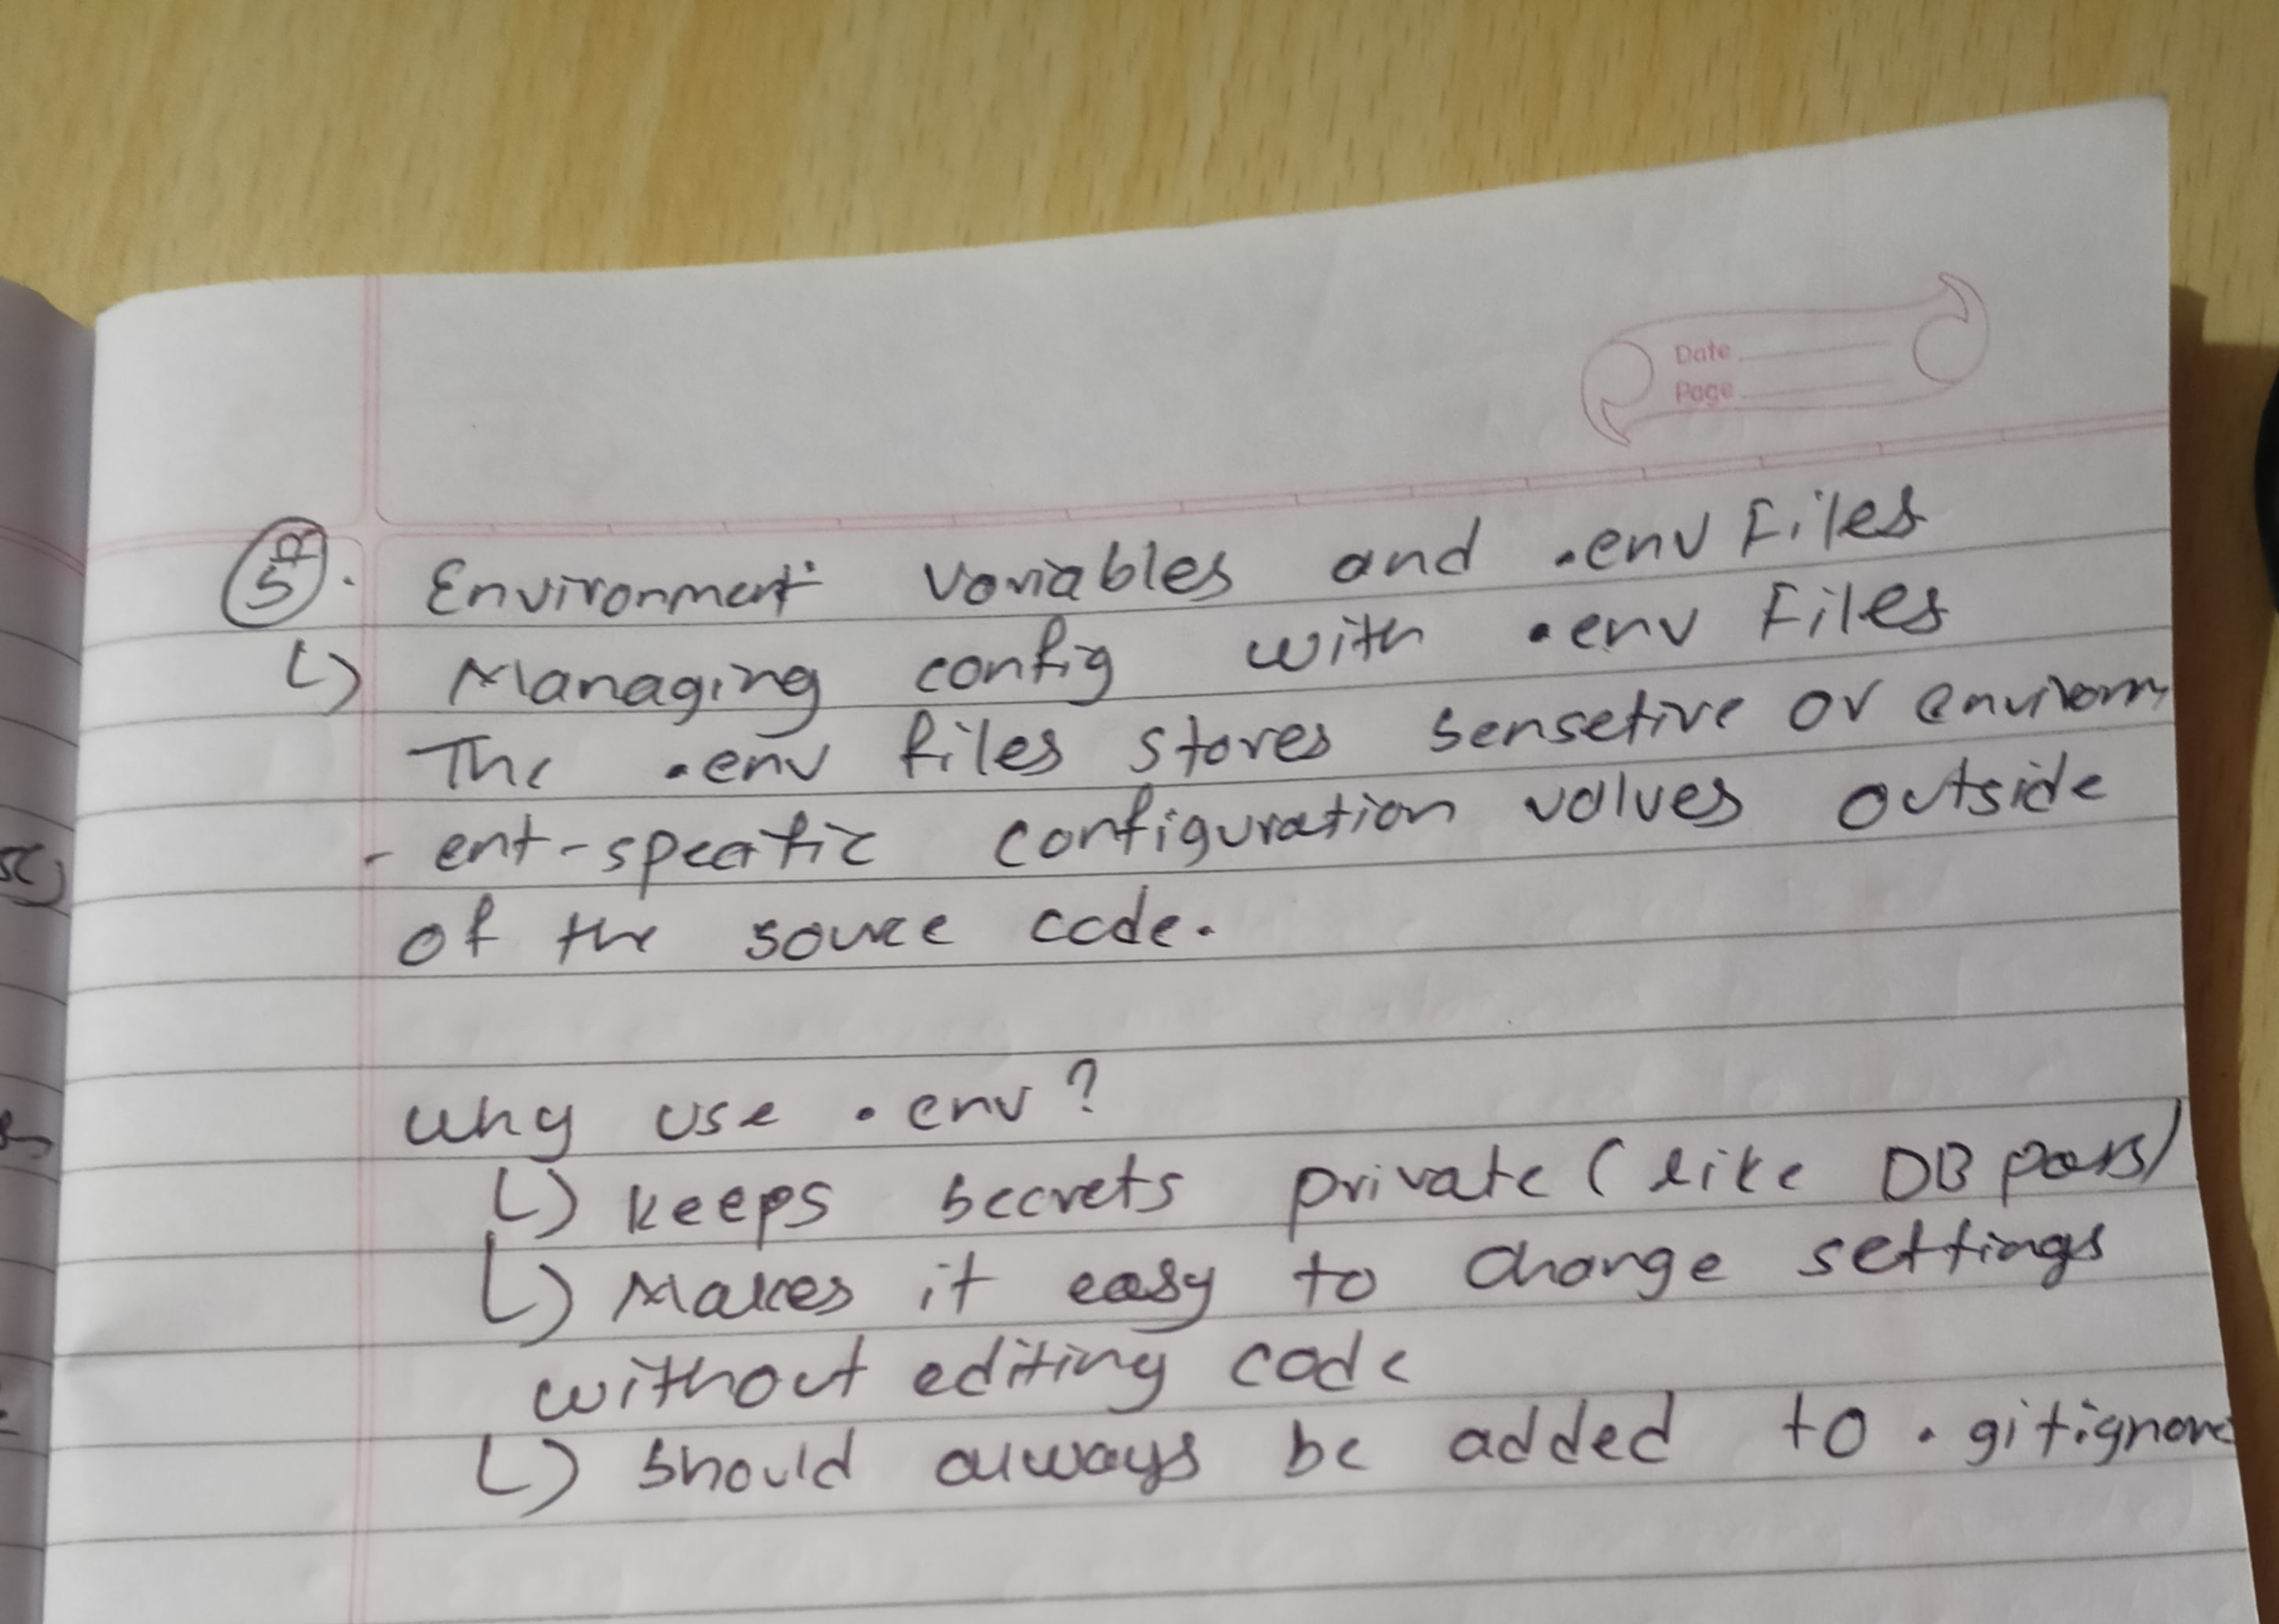 Date
Page
5. Environment variables and .env Files
↳ Managing config with .env Files
The .env files stores sensetive or environm
- ent-specific configuration values outside
of the source code.
why use .env?
↳ keeps secrets private (like DB pass)
↳ Makes it easy to change settings
without editing code
↳ should always be added to .gitignore